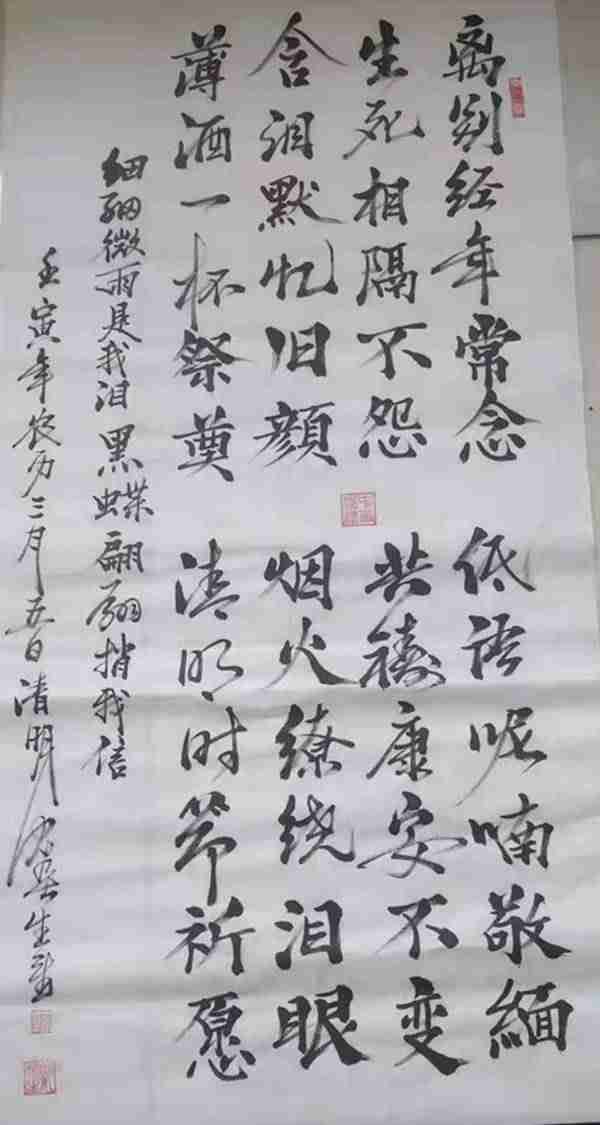 离别经年常念
生死相隔不怨
含泪默忆旧颜
薄酒一杯祭奠
低语呢喃敬缅
共祷康安不变
烟火缭绕泪眼
清明时节祈愿
细细微雨是我泪黑蝶翩翩捎我信
壬寅年农历三月五日清明